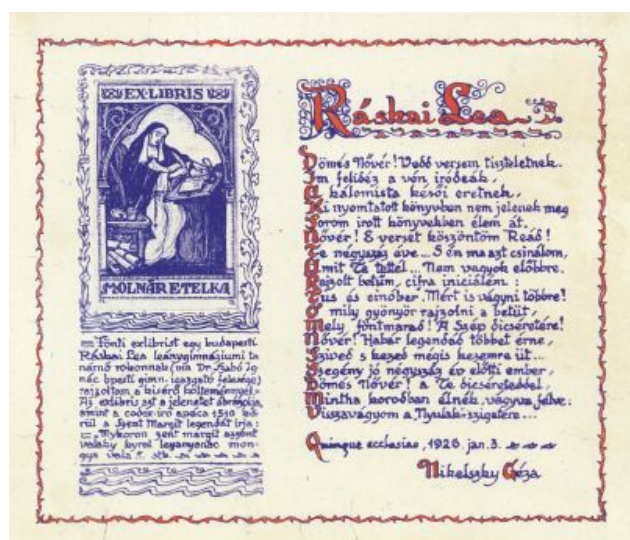 EX·LIBRIS
MOLNÁR ETELKA
Fönti exlibrist egy budapesti
Ráskai Lea leánygimnáziumi ta
nárnő rokonnak (ma Dr. Szabó Ig-
nác bpesti gimn. igazgató felesége)
rajzoltam a kisérő költeménnyel.
Az exlibris azt a jelenetet ábrázolja,
amint a codex-iró apáca 1510 kö-
rül a Szent Margit legendát irja:
Mykoron zent margit azzont
valaky kyral leyanyanac mon-
gya vala
Ráskai Lea
Dömés Nővér! Vedd versem tiszteletnek.
Im felidéz a vén iródeák,
A kálomista késői eretnek,
Ki nyomtatott könyvben nem jelenek meg
Sorom irott könyvekben élem át.
Nővér! E verset köszöntöm Reád!
Te négyszáz éve... S én ma azt csinálom,
Amit Te tettél... Nem vagyok előbbre.
Rajzolt betűm, cifra iniciálém:
Tus és cinóber. Mért is vágyni többre!
O mily gyönyör rajzolni a betűt,
Mely föntmarad! A Szép dicséretére!
Nővér! Habár legendád többet érne,
Szived s kezed mégis kezemre üt...
Szegény jó négyszáz év előtti ember,
Dömés Nővér! a Te dicséreteddel,
Mintha korodban élnék, vágyva, félve:
Visszavágyom a Nyulak-szigetére...
Quinque ecclesiae, 1926. jan. 3.
Nikelszky Géza